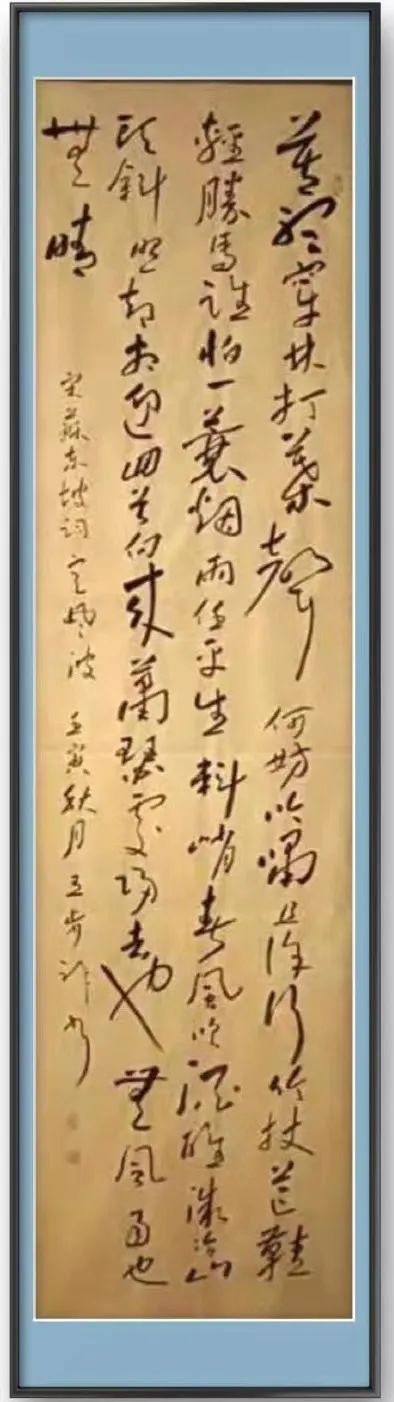 莫聽穿林打葉聲何妨吟嘯且徐行竹杖芒鞋
輕勝馬誰怕一蓑烟雨任平生料峭春風吹酒醒微冷山
頭斜照却相迎回首向來蕭瑟處歸去也無風雨也
無晴
宋蘇東坡詞定風波壬寅秋月